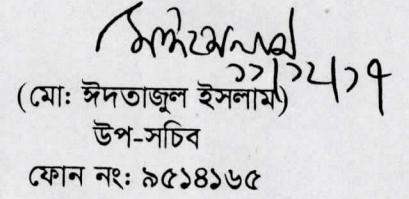 ১১/১২/১৭
(মো: ঈদতাজুল ইসলাম)
উপ-সচিব
ফোন নং: ৯৫১৪১৬৫